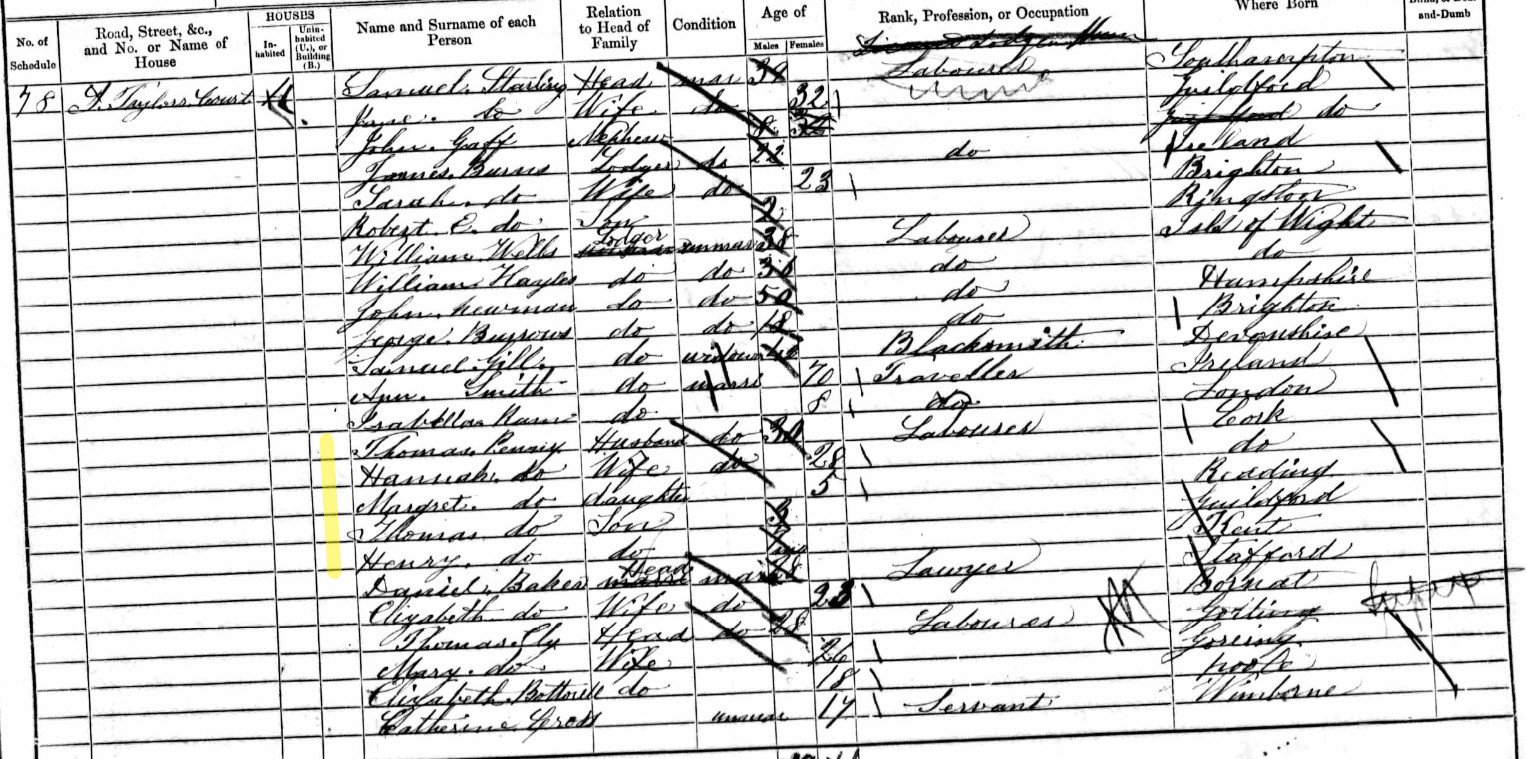 No. of Schedule
Road, Street, &c., and No. or Name of House
HOUSES
Inhabited
Uninhabited (U.), or Building (B.)
Name and Surname of each Person
Relation to Head of Family
Condition
Age of
Males Females
Rank, Profession, or Occupation
Where Born
and-Dumb
78 Taylors Court Samuel Starling Head mar 38 Labourer Southampton
Jane do Wife do 32 Guildford
John Goff Nephew 8 do
James Burns Lodger do 22 do Ireland
Sarah do Wife do 23 Brighton
Robert E. do Son 2
William Wells Lodger unmar 38 Labourer Isle of Wight
William Hayles do do 36 do do
John Newman do do 50 do Hampshire
George Burrows do do 18 do Brighton
Samuel Gill do widower Blacksmith Devonshire
Ann Smith do marr 70 Traveller Ireland
Isabella do 8 do London
Thomas Penny Husband do 30 Labourer Cork
Hannah do Wife do 28 do
Margret do daughter 5 Reading
Thomas do Son 3 Guildford
Henry do do Kent
Daniel Baker Head marr 28 Lawyer Stafford
Elizabeth do Wife do 23
Thomas Ely Head do 28 Labourer
Mary do Wife 26
Elizabeth do 18 Poole
Catherine Cross unmar 17 Servant Wimborne